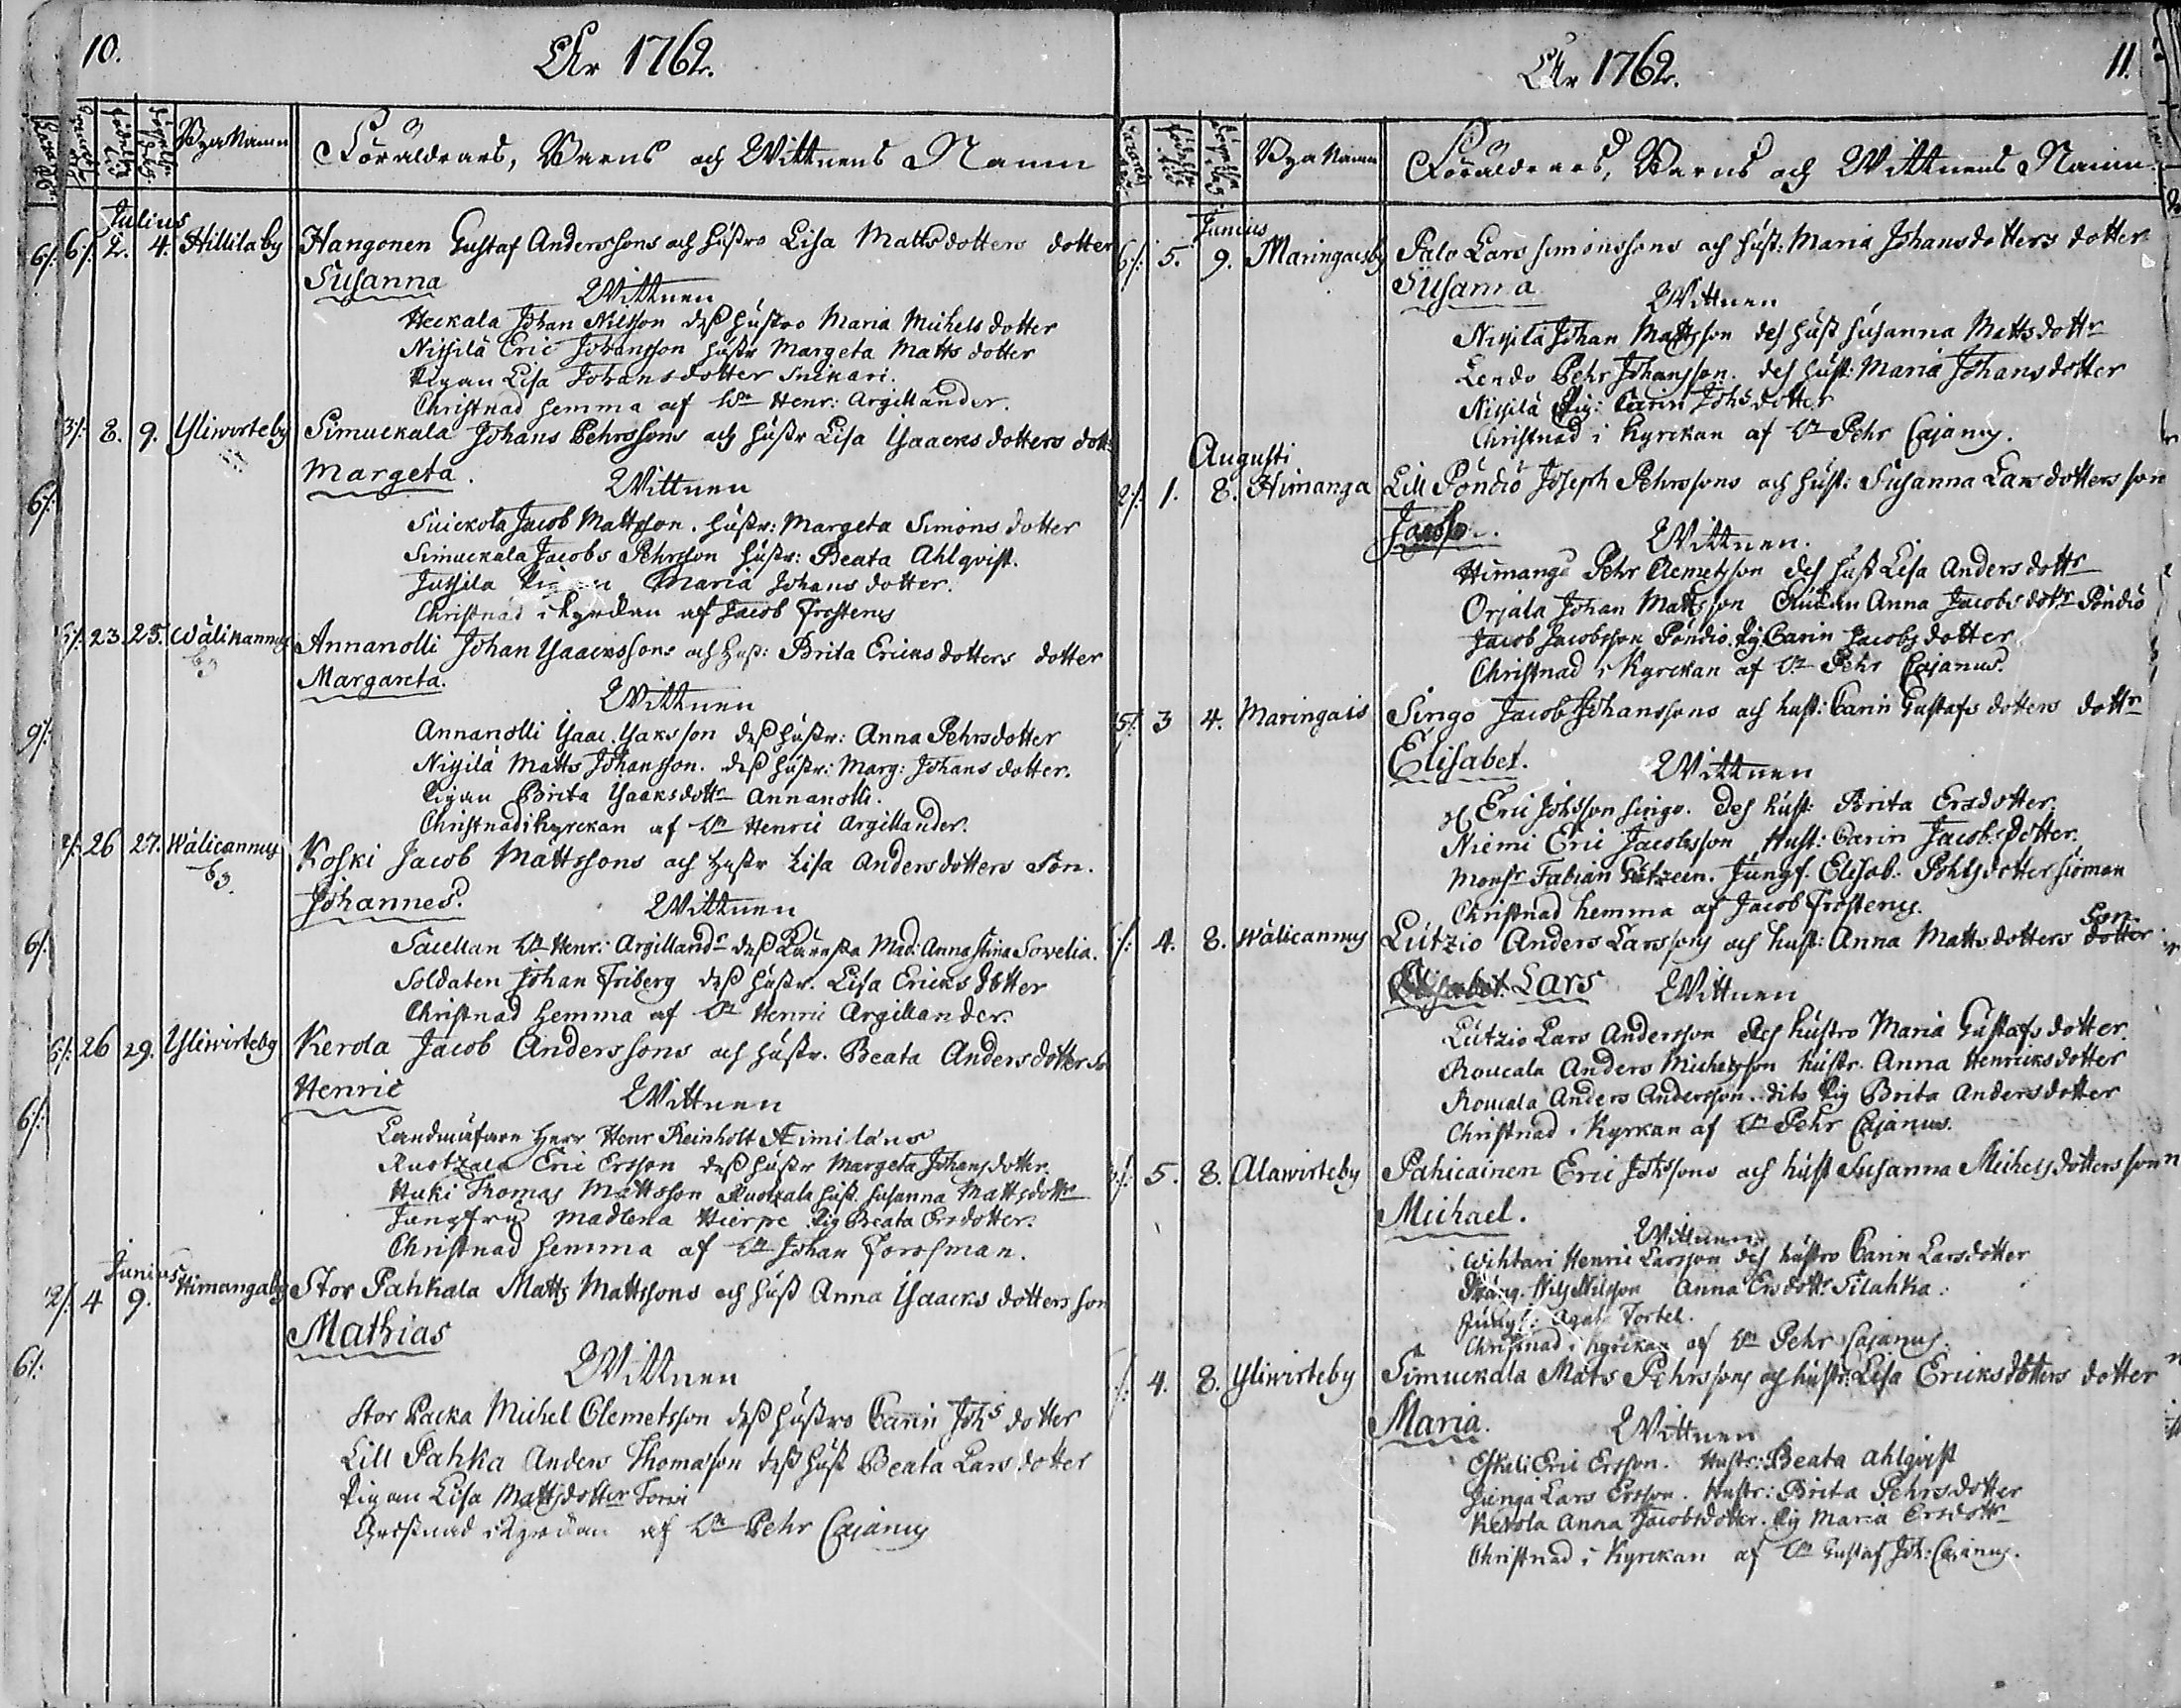 10.
År 1762.
Bya Namn
Föräldrars, Barns och Wittnens Namn
Julius
6/: 6/: 2. 4. Hillilaby Hangonen Gustaf Anderssons och hustro Lisa Mattsdotters dotter
Susanna
Wittnen
Heckala Johan Nilsson dess hustro Maria Michels dotter
Nissilä Eric Johansson hustr Margeta Matts dotter
Pigan Lisa Johansdotter Snikari.
Christnad hemma af Wn Henr: Argillander.
3/: 8. 9. Yliwirteby Simuckala Johans Pehrssons och hustr Lisa Ysaacks dotters dott:
Margeta.
6/: Wittnen
Suickola Jacob Mattsson. hustr: Margeta Simons dotter
Simuckala Jacobs Pehrsson hustr: Beata Ahlqvist.
Jussila Maria Johans dotter.
Christnad i Kyrckan af Jacob Frosterus
23. 25. Wälikannus Annanolli Johan Ysaackssons och Hust: Brita Ericksdotters dotter
by
Margareta.
Wittnen
9/: Annanolli Ysaac Ysaksson dess hustr: Anna Pehrsdotter
Nissilä Matts Johansson. dess hustr: Marg: Johans dotter.
Pigan Brita Ysaaksdottr Annanolli.
Christnad i Kyrckan af Wn Henric Argillander.
2/: 26 27. Wälicannus Koski Jacob Mattssons och hustr Lisa Andersdotters Son.
by.
Johannes.
Wittnen
6/: Wn Henr: Argillandr dess Mad: Anna Stina Sovelia.
Soldaten Johan Friberg dess hustr. Lisa Ericks dotter
Christnad hemma af Wn Henric Argillander.
6/: 26 29. Yliwirteby Kerola Jacob Anderssons och hustr. Beata Andersdotter So
Henric
6/: Wittnen
Herr Henr Reinholt
Ruotzala Eric Ersson dess hustr Margeta Johansdotter.
Huki Thomas Mattsson Ruotzala hust. Susanna Mattsdottr
Jungfru Madlena Hierpe Pig Beata Ersdotter.
Christnad hemma af Wn Johan Forssman.
Junius
2/: 4 9. Himangaby Stor Pahkala Matts Mattssons och hust Anna Ysaacks dotters son
Mathias
6/: Wittnen
Stor Packa Michel Clemetsson dess hustro Carin Johs dotter
Lill Pahka Anders Thomasson dess hust Beata Lars dotter
Pigan Lisa Mattsdotter Torvi
Christnad i Kyrckan af Wn Pehr Cajanus
År 1762.
11.
Bya Namn
Föräldrars, Barns och Wittnens Namn
Junius
6/: 5. 9. Maringaisby Palo Lars Simonssons och hust: Maria Johansdotters dotter
Susanna
Wittnen
Nissilä Johan Mattsson dess hust Susanna Mattsdottr
Lendo Pehr Johansson. dess hust: Maria Johansdotter
Nissilä Pig: Carin Johsdotter
Christnad i Kyrckan af Wn Pehr Cajanus.
Augusti
2/: 1. 8. Himanga Lill Pöndiö Joseph Pehrssons och hust: Susanna Larsdotters son
Wittnen.
Himanga Pehr Clemetsson dess hust Lisa Andersdottr
Orjala Johan Mattsson Anna Jacobsdottr Pöndiö
Jacob Jacobsson Pöndiö. Pig Carin Jacobsdotter
Christnad i Kyrckan af Wn Pehr Cajanus.
5/: 3 4. Maringais Singo Jacob Johanssons och hust: Carin Gustafs dotters dottr
Elisabet.
Wittnen
Eric Johsson Singo. dess hust: Brita Ersdotter.
Niemi Eric Jacobsson Hust: Carin Jacobsdotter.
Monsr Fabian Jungf. Elisab. Pohlsdotter Sioman
Christnad hemma af Jacob Frosterus.
4. 8. Wälicannus Lutzio Anders Larssons och hust: Anna Mattsdotters dotter Son
Elisabet. Lars
Wittnen
Lutzio Lars Andersson dess hustro Maria Gustafsdotter.
Roucala Anders Michelsson hustr. Anna Henricksdotter
Roucala Anders Andersson. dito Pig Brita Andersdotter
Christnad i Kyrkan af Wn Pehr Cajanus.
3/: 5. 8. Alawirteby Pahicainen Eric Johssons och hust Susanna Michelsdotters son
Michael.
Wittnen
Wihtari Henric Larsson dess hustro Carin Larsdotter
Dräng. Nils Nilsson Anna Ersdottr Tilahka.
Jungf: Agat: Tortel.
Christnad i Kyrckan af Wn Pehr Cajanus.
4. 8. Yliwirteby Simuckala Mats Pehrssons och hustr: Lisa Ericksdotters dotter
Maria.
Wittnen
Eskeli Eric Ersson. Hustr: Beata Ahlqvist
Junga Lars Ersson. Hustr: Brita Pehrsdotter
Kerola Anna Jacobsdotter. Pig Maria Ersdottr
Christnad i Kyrckan af Wn Gustaf Joh: Cajanus.